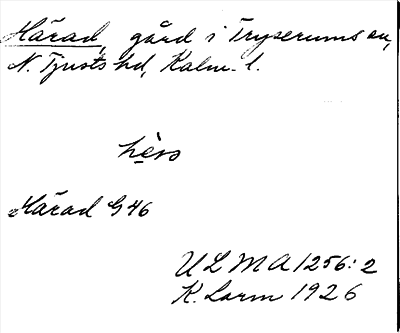 Härad, gård i Tryserums sn,
N. Tjusts hd, Kalm. l.
Härad G 46
ULMA 1256:2
K. Lorm 1926